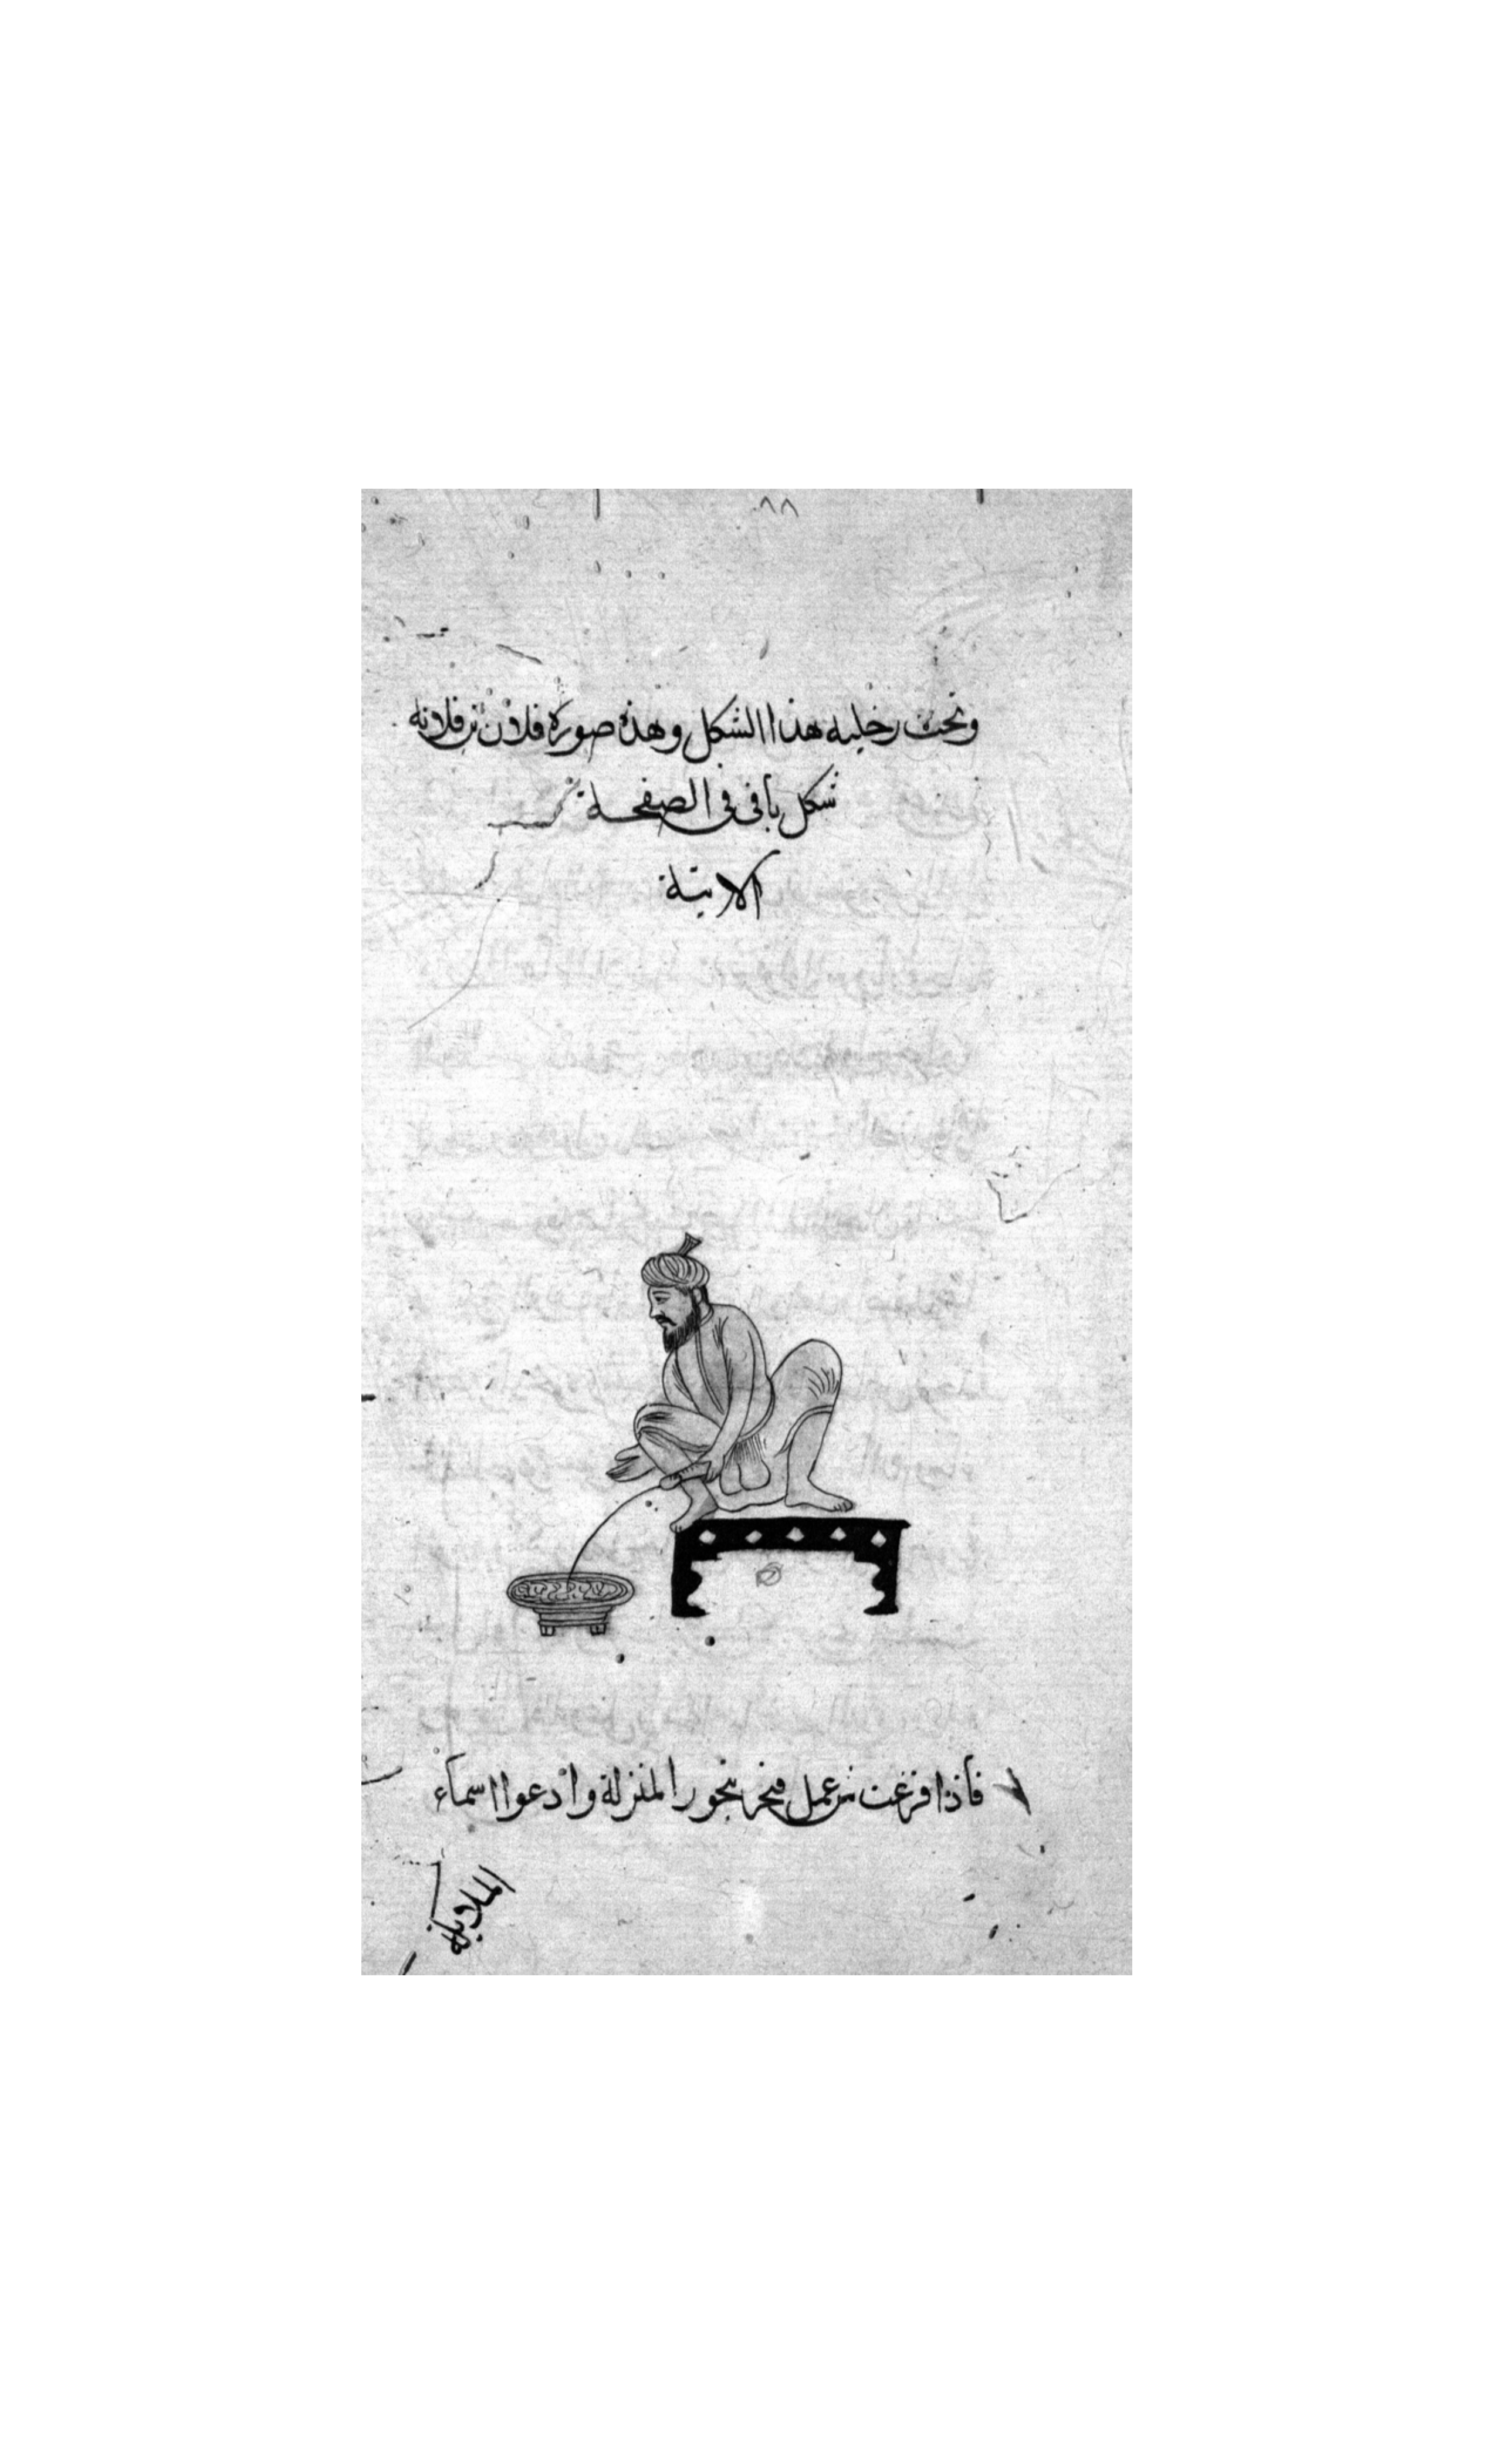 ٨٨
وتحت رجليه هذا الشكل وهذه صورة فلان بن فلانه
شكل باقى فى الصفحة
الاتية
فاذا فرغت من عمل فبخر ببخور المنزلة وادعوا اسماء
الملايكة